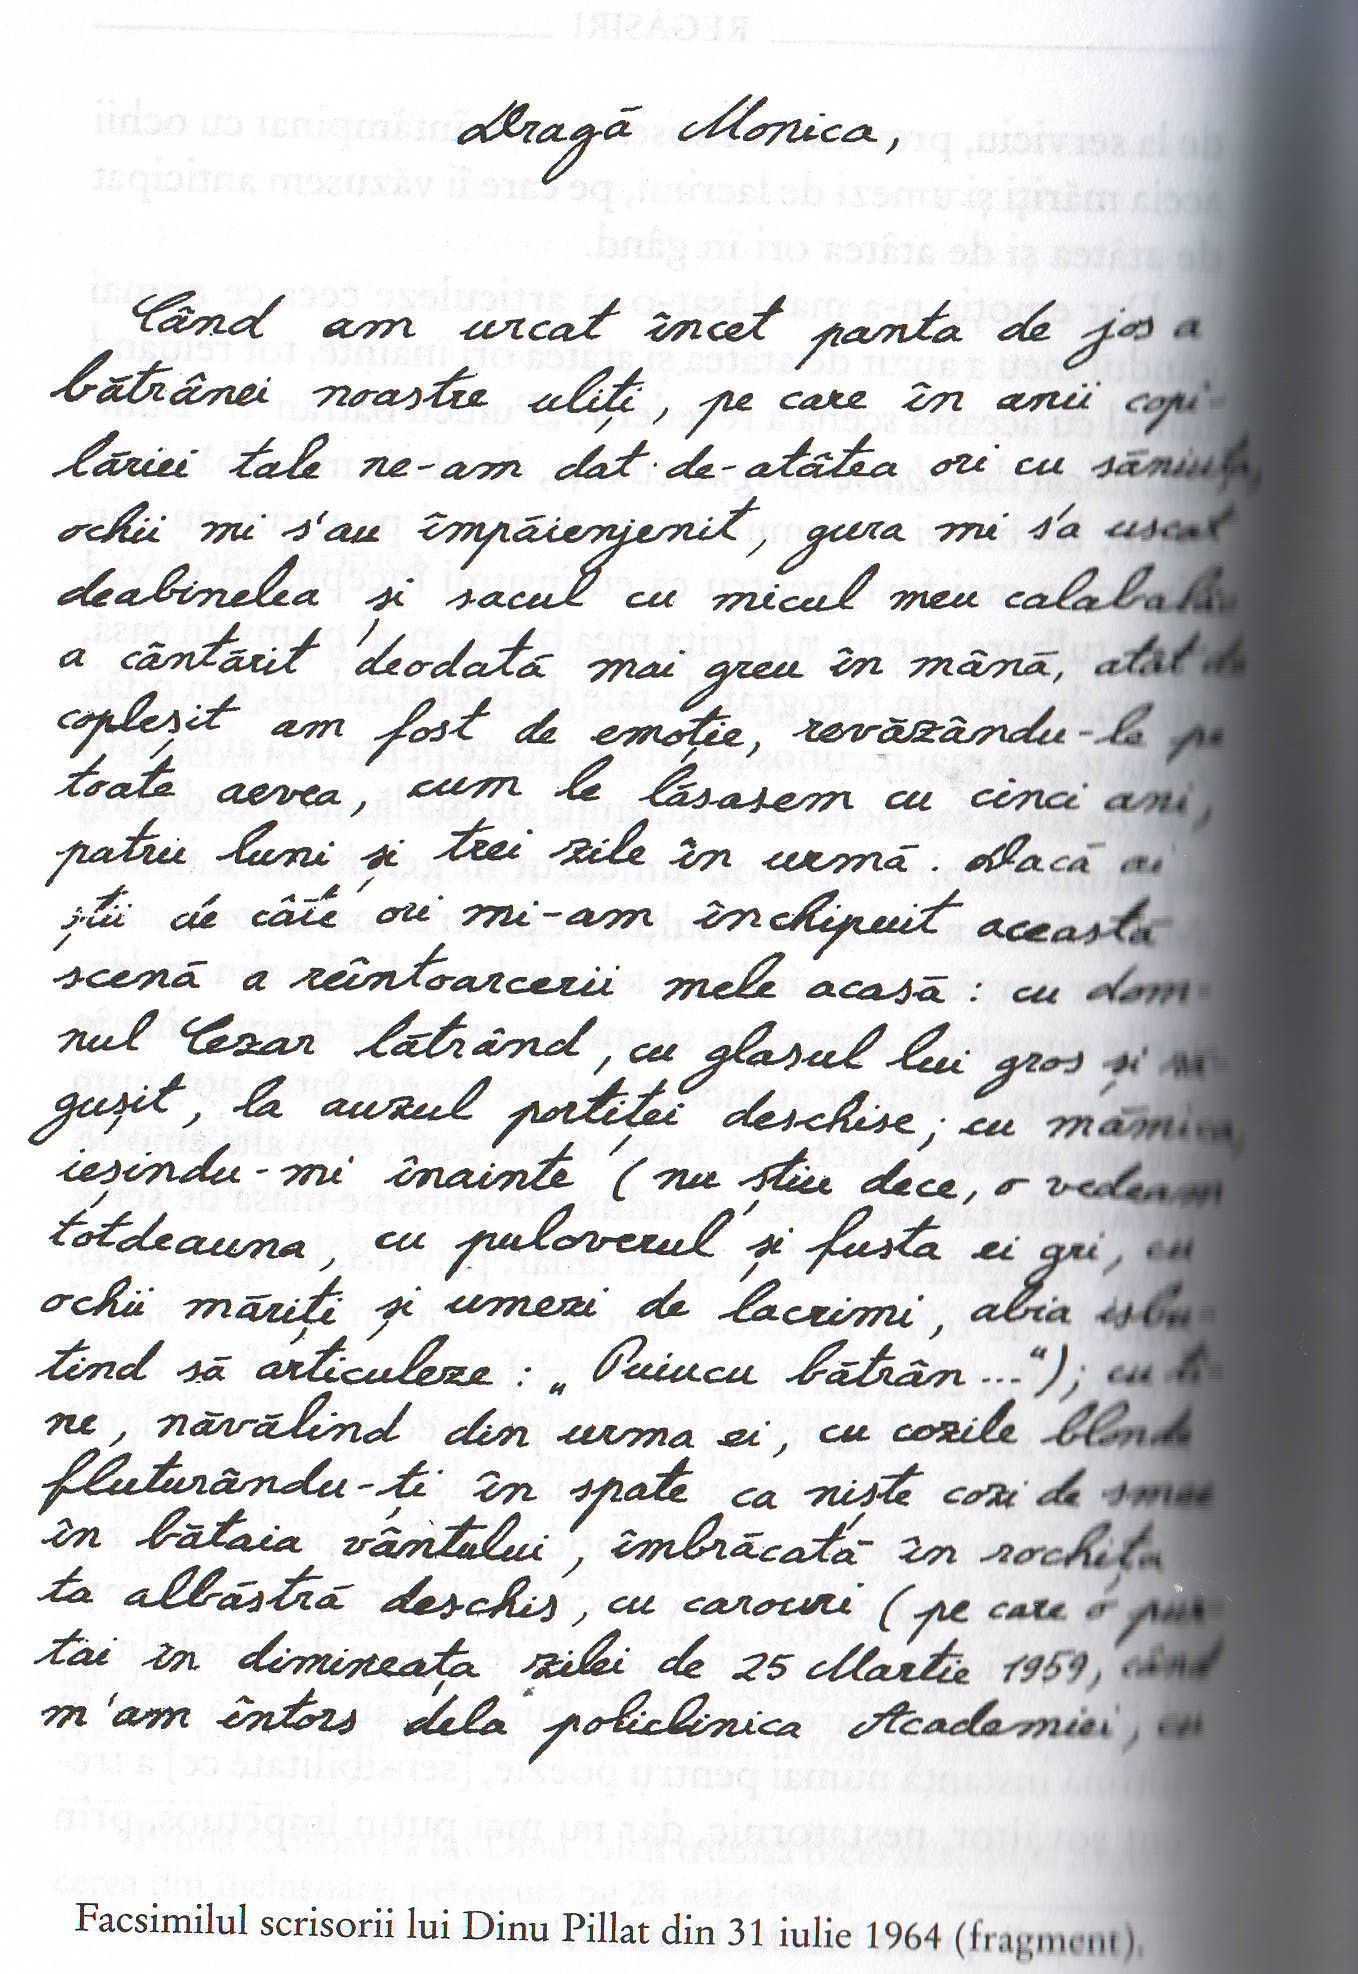 REGĂSIRI
Dragă Monica,
Când am urcat încet panta de jos a
bătrânei noastre uliți, pe care în anii copi-
lăriei tale ne-am dat de-atâtea ori cu săniuța,
ochii mi s'au împăienjenit, gura mi s'a uscat
deabinelea și sacul cu micul meu calabalâc
a cântărit deodată mai greu în mână, atât de
copleșit am fost de emoție, revăzându-le pe
toate aevea, cum le lăsasem cu cinci ani,
patru luni și trei zile în urmă. Dacă ai
știi de câte ori mi-am închipuit această
scenă a reîntoarcerii mele acasă: cu dom-
nul Cezar lătrând, cu glasul lui gros și ră-
gușit, la auzul portiței deschise; cu mămica,
ieșindu-mi înainte (nu știu dece, o vedeam
totdeauna, cu puloverul și fusta ei gri, cu
ochii măriți și umezi de lacrimi, abia isbu-
tind să articuleze: „Puiucu bătrân..."); cu ti-
ne, năvălind din urma ei, cu cozile blonde
fluturându-ți în spate ca niște cozi de smee
în bătaia vântului, îmbrăcată în rochița
ta albăstră deschis, cu carouri (pe care o pur-
tai în dimineața zilei de 25 Martie 1959, când
m'am întors dela policlinica Academiei, cu
Facsimilul scrisorii lui Dinu Pillat din 31 iulie 1964 (fragment).